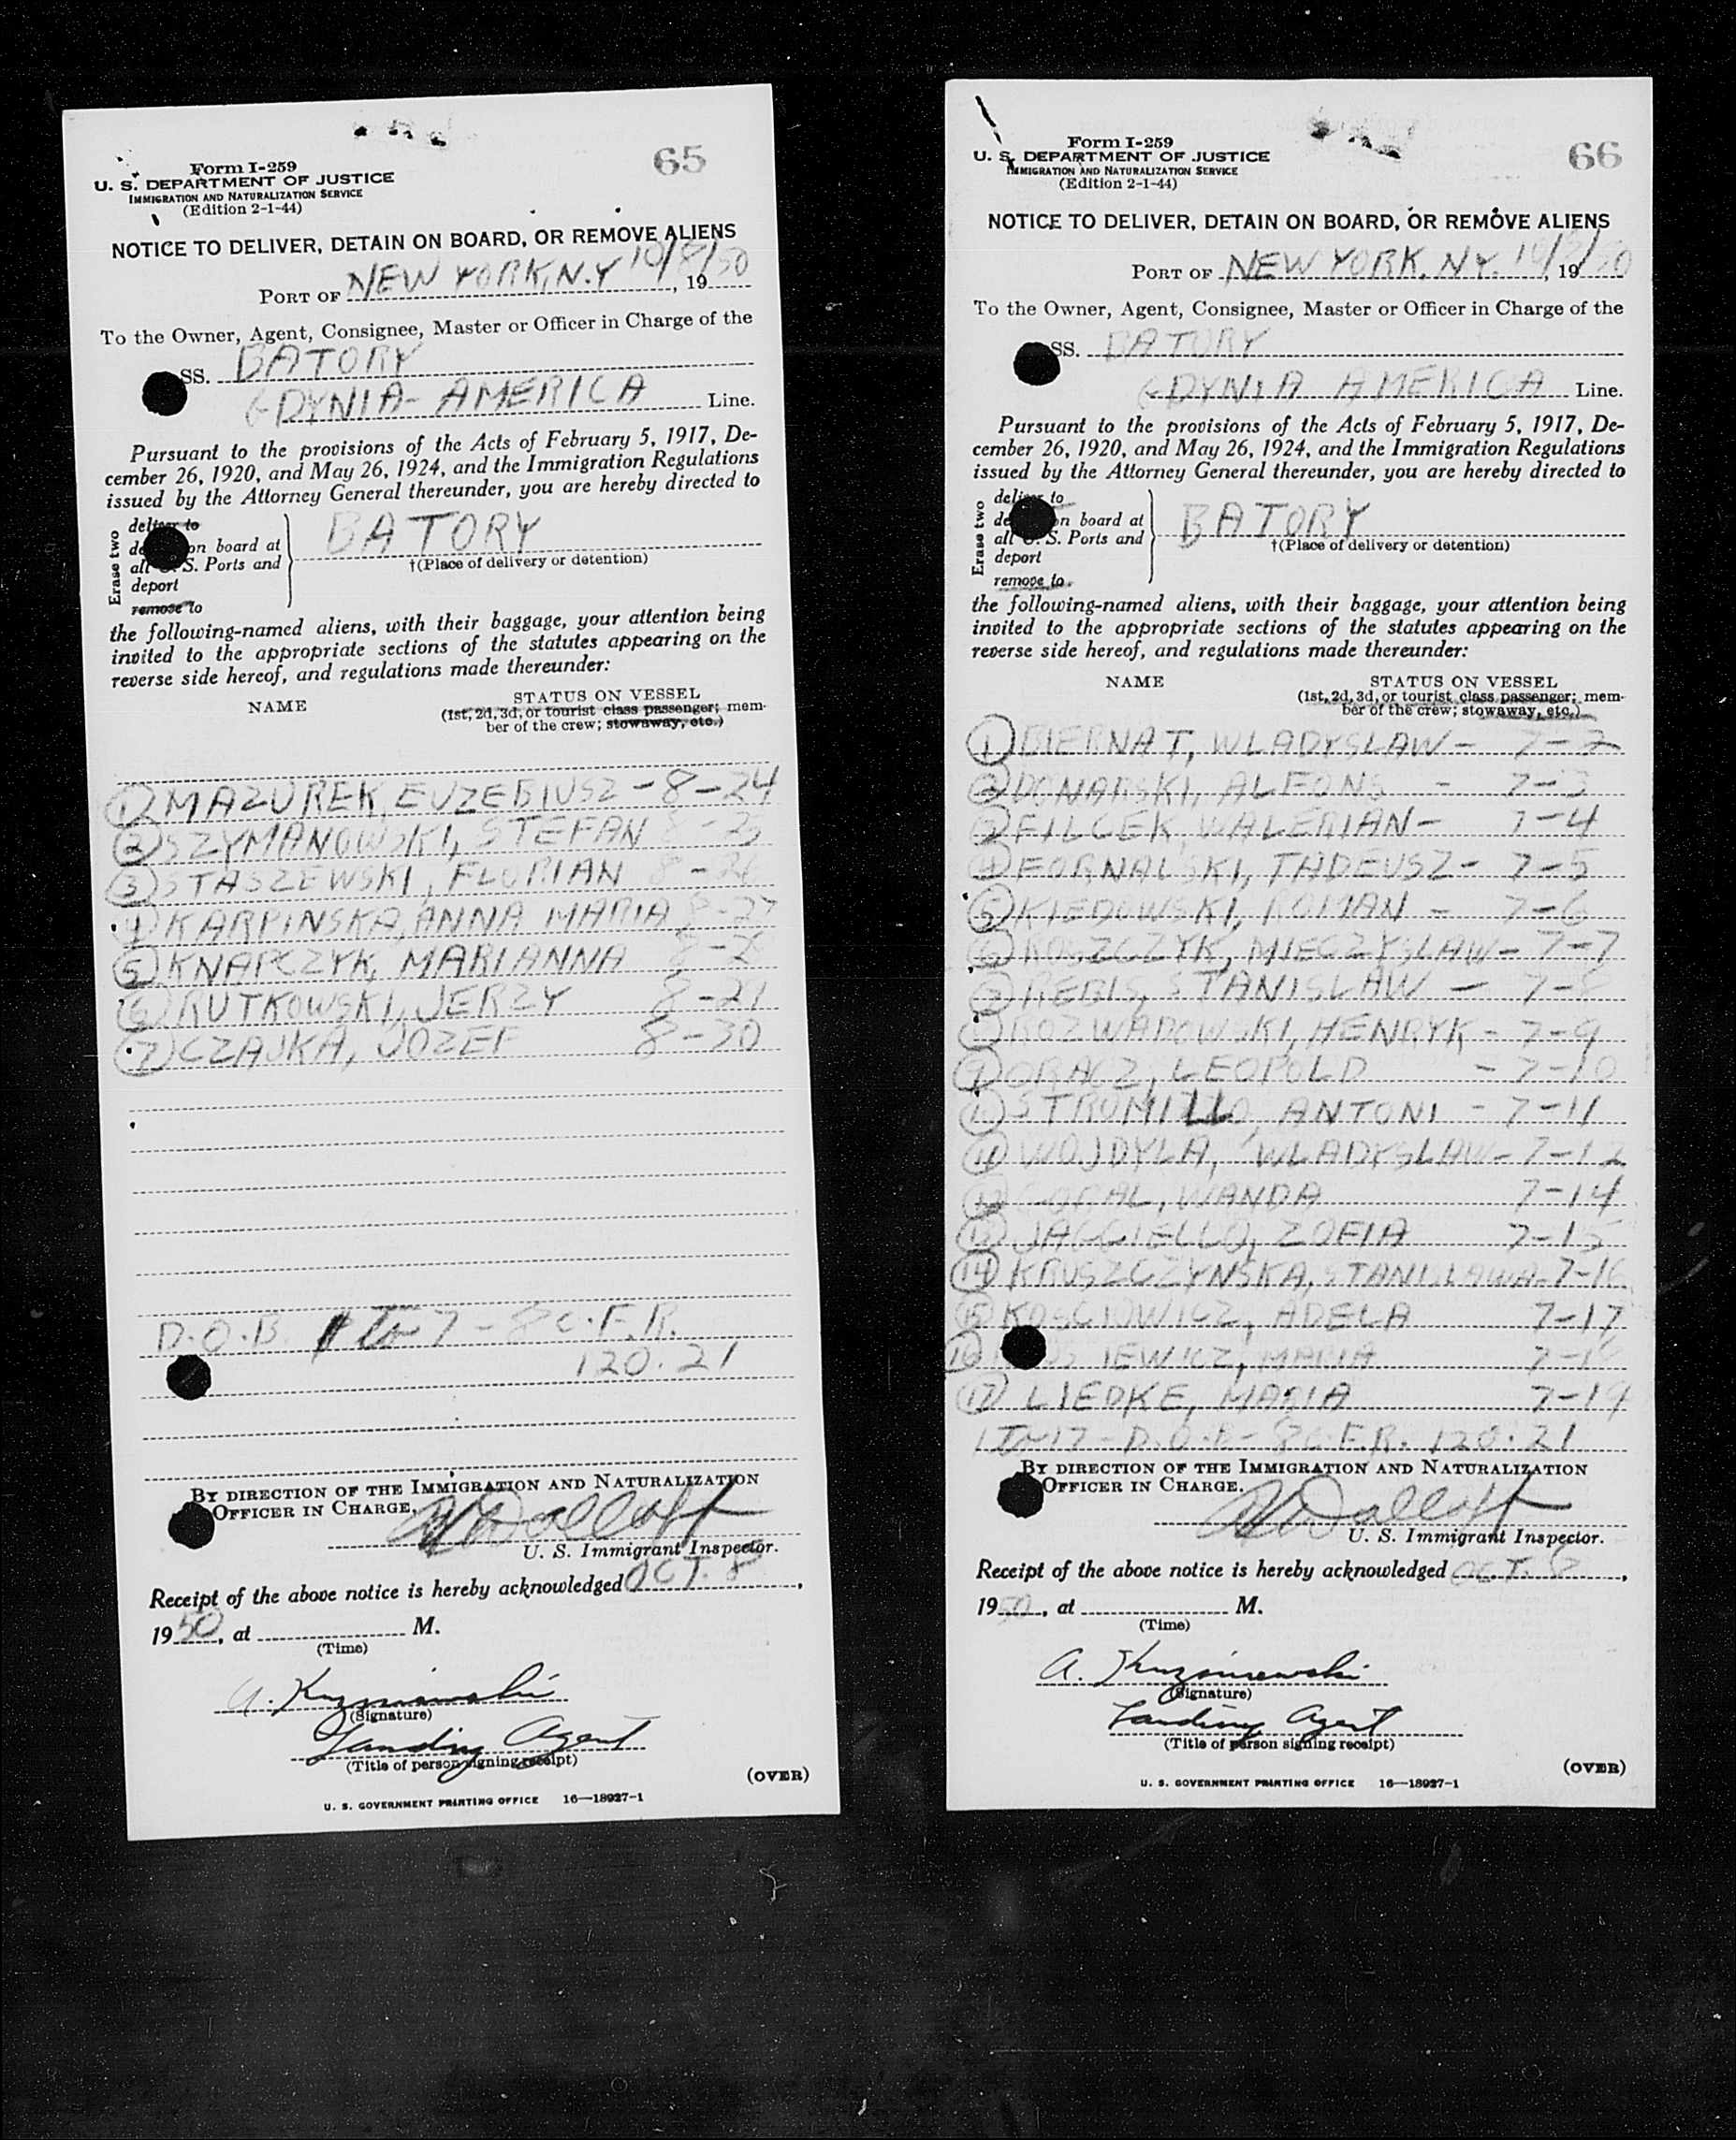 65
Form I-259
U. S. DEPARTMENT OF JUSTICE
IMMIGRATION AND NATURALIZATION SERVICE
(Edition 2-1-44)
NOTICE TO DELIVER, DETAIN ON BOARD, OR REMOVE ALIENS
PORT OF NEW YORK, N.Y 10/8/50, 19
To the Owner, Agent, Consignee, Master or Officer in Charge of the
SS. BATORY
GDYNIA-AMERICA Line.
Pursuant to the provisions of the Acts of February 5, 1917, De-
cember 26, 1920, and May 26, 1924, and the Immigration Regulations
issued by the Attorney General thereunder, you are hereby directed to
Erase two
deliver to
on board at
all U. S. Ports and
deport
remove to
BATORY
†(Place of delivery or detention)
the following-named aliens, with their baggage, your attention being
invited to the appropriate sections of the statutes appearing on the
reverse side hereof, and regulations made thereunder:
NAME
STATUS ON VESSEL
(1st, 2d, 3d, or tourist class passenger; mem-
ber of the crew; stowaway, etc.)
1 MAZUREK, EUZEBIUSZ - 8-24
2 SZYMANOWSKI, STEFAN 8-25
3 STASZEWSKI, FLORIAN 8-26
4 KARPINSKA, ANNA MARIA 8-27
5 KNAPCZYK, MARIANNA 8-
6 RUTKOWSKI, JERZY 8-29
7 CZAJKA, JOZEF 8-30
D.O.B. 1 To 7 - 8 C.F.R.
120.21
BY DIRECTION OF THE IMMIGRATION AND NATURALIZATION
OFFICER IN CHARGE.
U. S. Immigrant Inspector.
Receipt of the above notice is hereby acknowledged OCT. 8,
1950, at M.
(Time)
A. Kuzniewski
(Signature)
Landing Agent
(Title of person signing receipt)
(OVER)
U. S. GOVERNMENT PRINTING OFFICE 16—18927-1
66
Form I-259
U. S. DEPARTMENT OF JUSTICE
IMMIGRATION AND NATURALIZATION SERVICE
(Edition 2-1-44)
NOTICE TO DELIVER, DETAIN ON BOARD, OR REMOVE ALIENS
PORT OF NEW YORK, N.Y. 10/8/50, 19
To the Owner, Agent, Consignee, Master or Officer in Charge of the
SS. BATORY
GDYNIA AMERICA Line.
Pursuant to the provisions of the Acts of February 5, 1917, De-
cember 26, 1920, and May 26, 1924, and the Immigration Regulations
issued by the Attorney General thereunder, you are hereby directed to
Erase two
deliver to
on board at
all U. S. Ports and
deport
remove to
BATORY
†(Place of delivery or detention)
the following-named aliens, with their baggage, your attention being
invited to the appropriate sections of the statutes appearing on the
reverse side hereof, and regulations made thereunder:
NAME
STATUS ON VESSEL
(1st, 2d, 3d, or tourist class passenger; mem-
ber of the crew; stowaway, etc.)
1 BIERNAT, WLADYSLAW - 7-2
2 DONARSKI, ALFONS - 7-3
3 FILCEK, WALERIAN - 7-4
4 FORNALSKI, TADEUSZ - 7-5
5 KIEDOWSKI, ROMAN - 7-6
6 KOSZCZYK, MIECZYSLAW - 7-7
7 REBIS, STANISLAW - 7-8
8 ROZWADOWSKI, HENRYK - 7-9
9 ORACZ, LEOPOLD - 7-10
10 STROMILLO, ANTONI - 7-11
11 WOJDYLA, WLADYSLAW - 7-12
12 GORAL, WANDA 7-14
13 JAGGIELLO, ZOFIA 7-15
14 KRUSZCZYNSKA, STANISLAWA - 7-16
15 KOSCIOWICZ, ADELA 7-17
16 MARIA 7-18
17 LIEDKE, MARIA 7-19
1 To 17 - D.O.B - 8 C.F.R. 120.21
BY DIRECTION OF THE IMMIGRATION AND NATURALIZATION
OFFICER IN CHARGE.
U. S. Immigrant Inspector.
Receipt of the above notice is hereby acknowledged OCT. 8,
1950, at M.
(Time)
A. Kuzniewski
(Signature)
Landing Agent
(Title of person signing receipt)
(OVER)
U. S. GOVERNMENT PRINTING OFFICE 16—18927-1